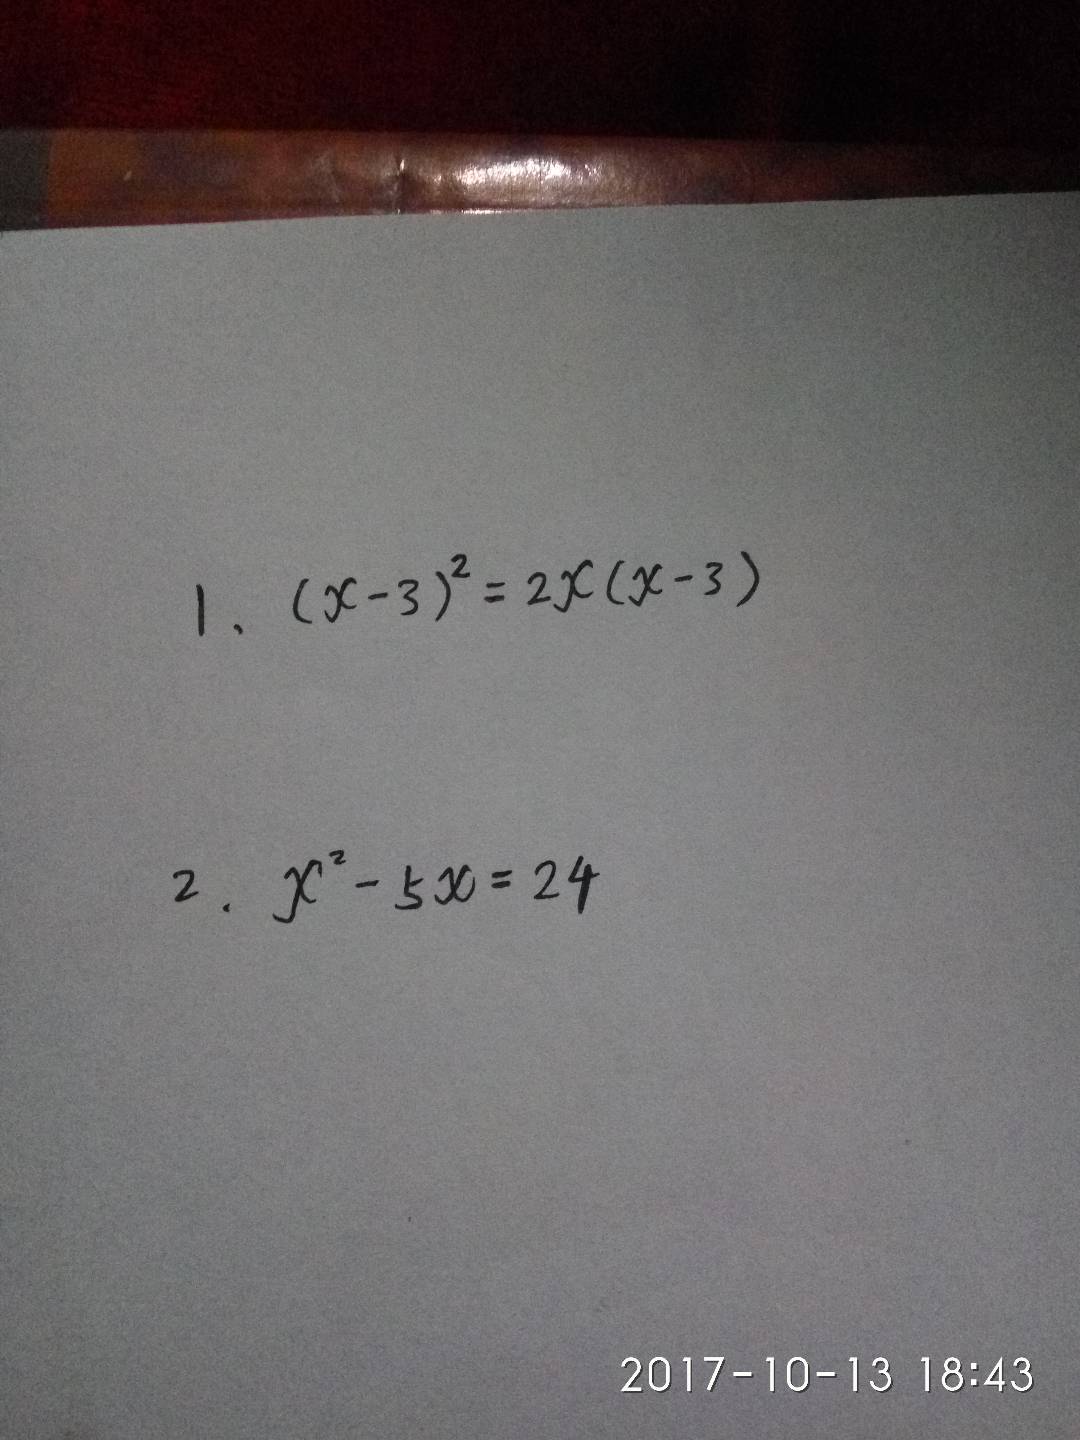 1. (x-3)² = 2x(x-3)
2. x² - 5x = 24
2017-10-13 18:43